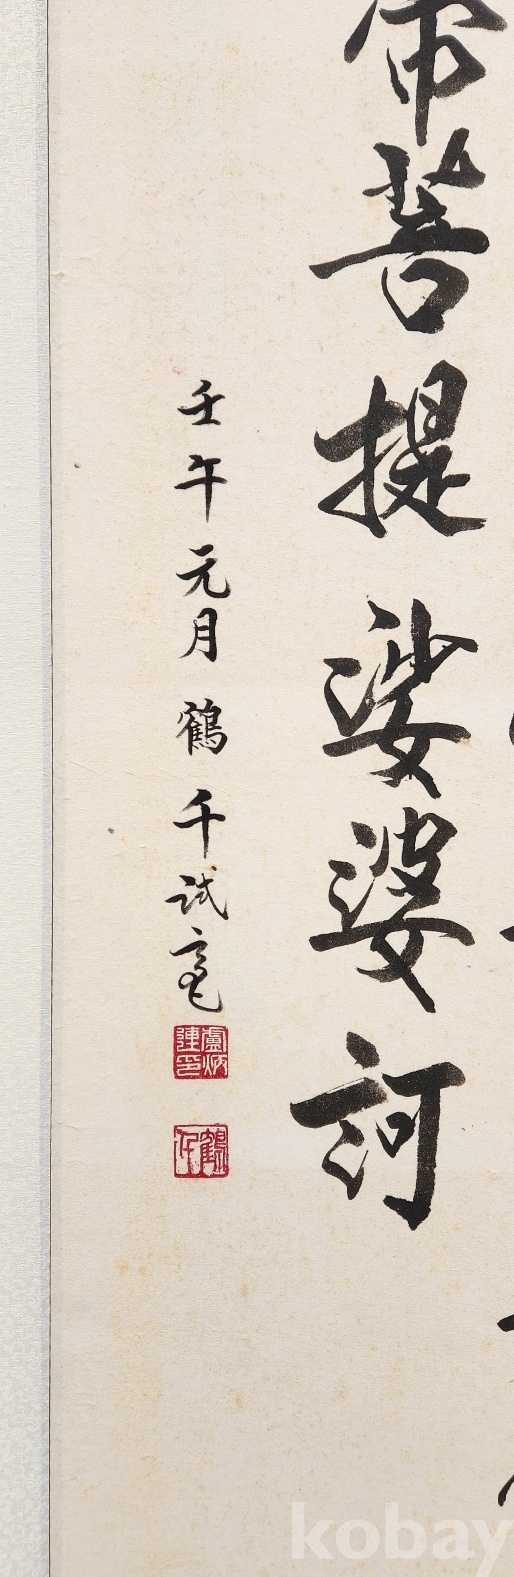 帝菩提娑婆訶
壬午元月鶴千試毫
盧炳
連印
鶴
千
kobay